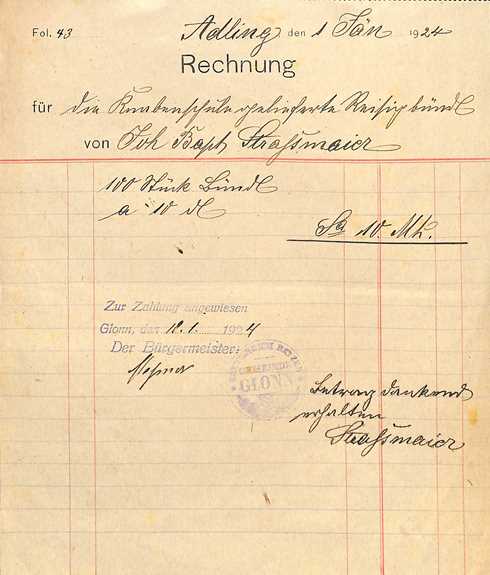 Fol. 43
Adling den 1 Jän 1924
Rechnung
für die Knabenschule gelieferte Reisigbündl
von Joh Bapt Straßmaier
100 Stück Bündl
a 10 dl
Sa 10. Mk.
Zur Zahlung angewiesen
Glonn, den 12.1. 1924
Der Bürgermeister:
GEMEINDE
GLONN
Betrag dankend
erhalten
Straßmaier